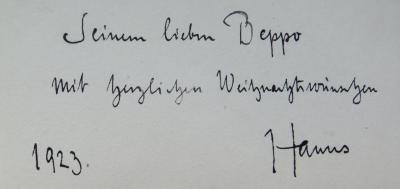 Seinem lieben Beppo
Mit herzlichen Weihnachtswünschen
1923.
Hanns